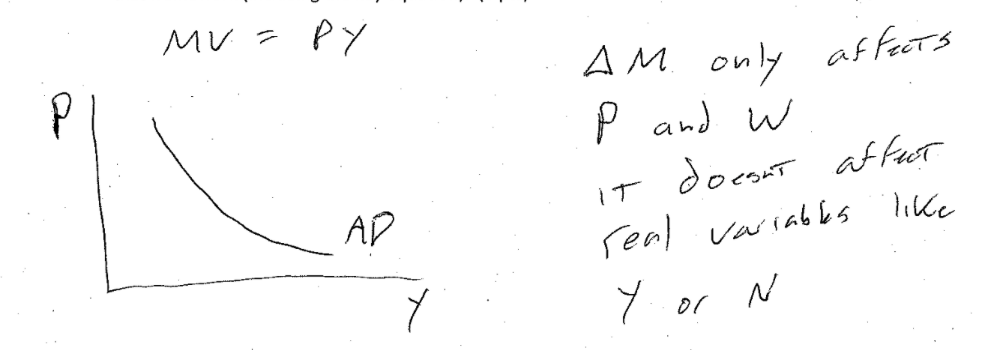 MV = PY
P
AD
Y
ΔM only affects
P and W
it doesnt affect
real variables like
Y or N